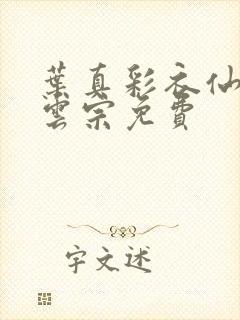 葉真彩衣仙
雲宗免費
宇文述